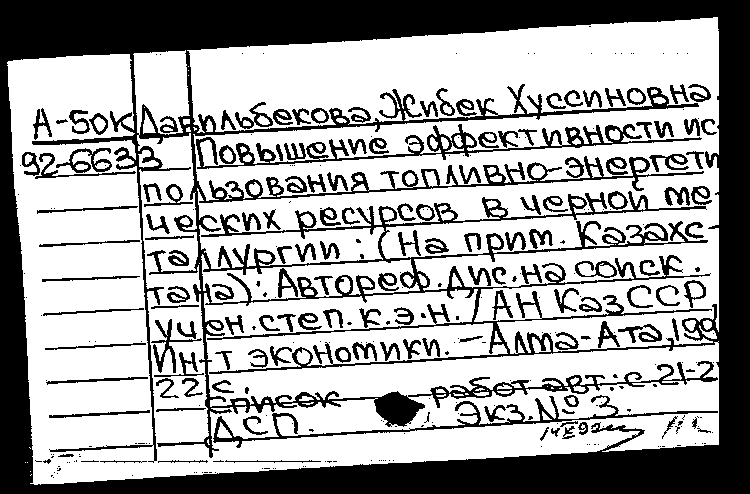 А-50К Давильбекова, Жибек Хуссиновна.
92-6633 Повышение эффективности ис-
пользования топливно-энергети
ческих ресурсов в черной ме-
таллургии : (На прим. Казахс-
тана): Автореф. дис. на соиск.
учен. степ. к.э.н. / АН КазССР,
Ин-т экономики. - Алма-Ата, 199
22 с.
Список работ авт.: с. 21-2
ДСП. Экз. № 3.